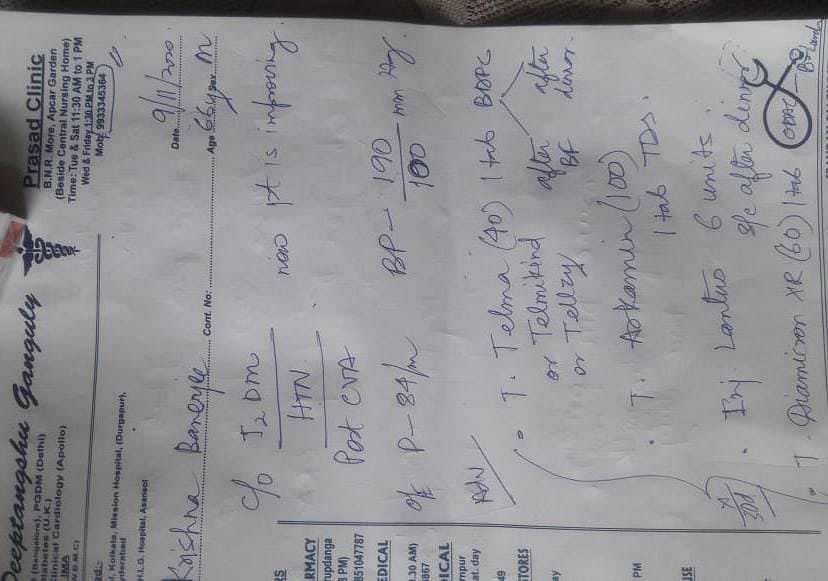 Deeptangshu Ganguly
(Bangalore), PGDM (Delhi)
Diabetes (U.K.)
Clinical Cardiology (Apollo)
IMA
Prasad Clinic
B.N.R. More, Apcar Garden
(Beside Central Nursing Home)
Time: Tue & Sat 11:30 AM to 1 PM
Wed & Friday 1:30 PM to 3 PM
Mob: 9933345364
Kolkata, Mission Hospital, (Durgapur),
Hyderabad
H.L.G. Hospital, Asansol
Date 9/11/2020
Krishna Banerjee Cont. No: Age 66y Sex M
c/o T2DM
HTN
Post CVA
now pt is improving.
o/e P - 84/m BP - 190/100 mm Hg
Adv
T. Telma (40) 1 tab BDPC
or Telmikind
or Tellzy
after BF
after dinner.
T. Arkamin (100)
1 tab TDS.
Inj Lantus 6 units
s/c after dinner
x 30d
T. Diamicron XR (60) 1 tab ODAC
RMACY
rupdanga
3 PM)
851047787
EDICAL
1.30 AM)
ICAL
STORES
PM
USE